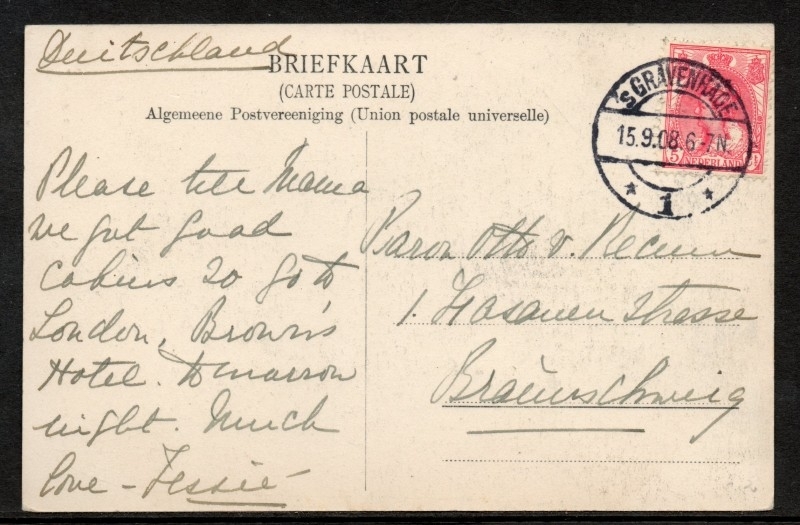 Deutschland
BRIEFKAART
(CARTE POSTALE)
Algemeene Postvereeniging (Union postale universelle)
'sGRAVENHAGE
15.9.08 6-7N
1
5
NEDERLAND
Please tell Mama
we got good
cabins so go to
London, Brown's
Hotel. tomorrow
night. Much
love - Jessie
Baron Otto v.
1. Fasanen strasse
Braunschweig